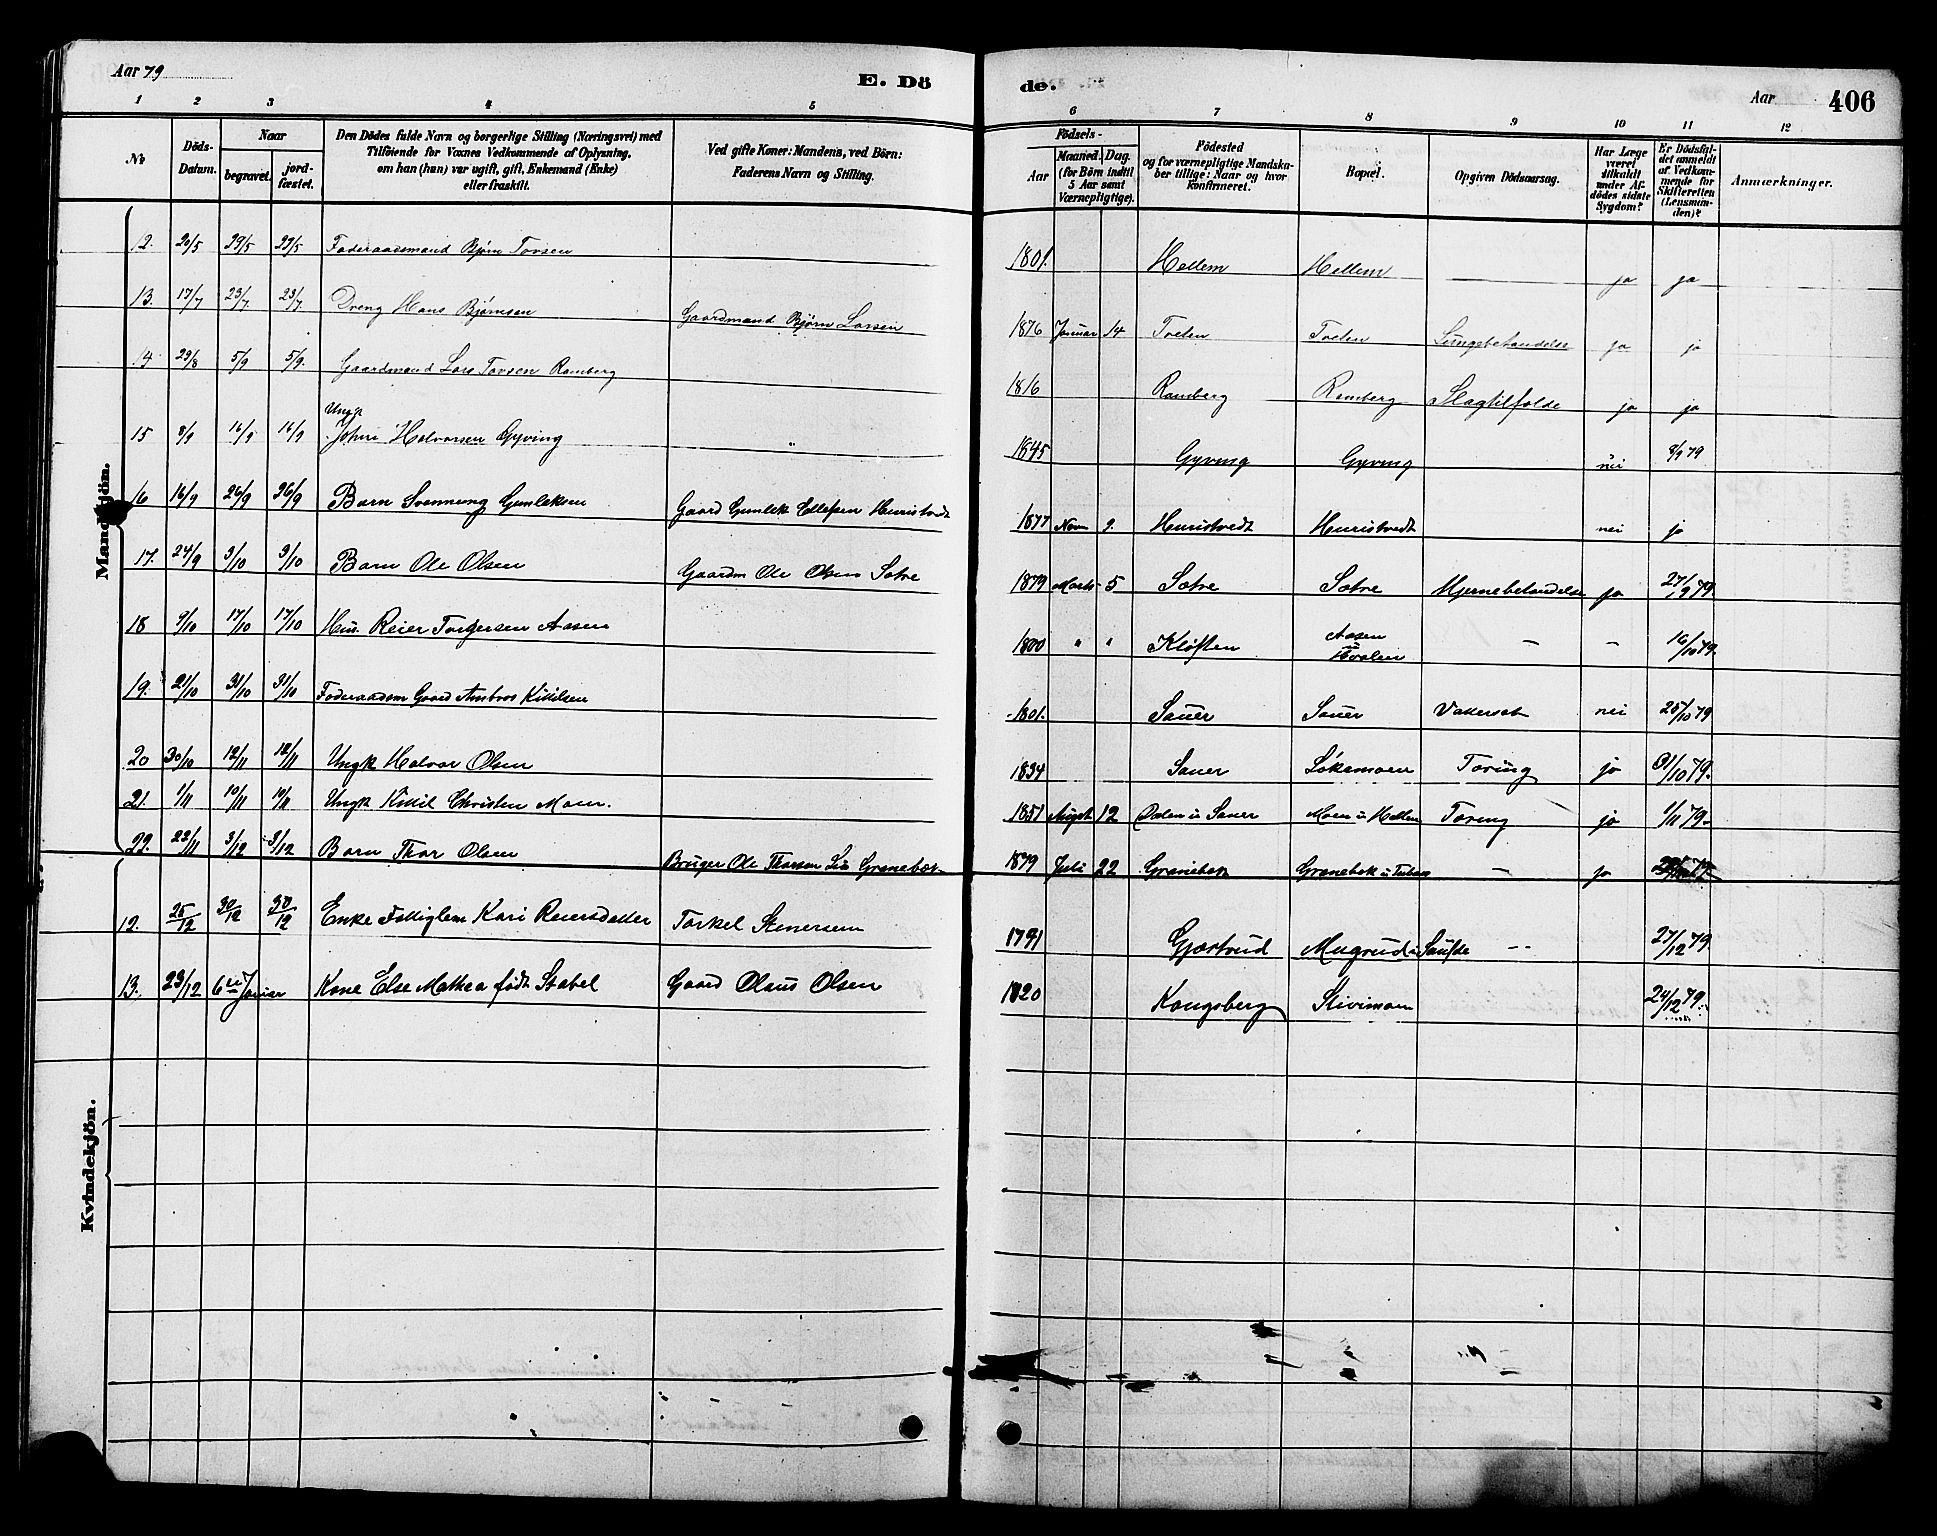 Aar 79
E. Dö de.
Aar 406
1 2 3 4 5 6 7 8 9 10 11 12
No
Döds-Datum.
Naar
begravet.
jord-fæstet.
Den Dödes fulde Navn og borgerlige Stilling (Næringsvei) med
Tilföiende for Voxnes Vedkommende af Oplysning,
om han (hun) var ugift, gift, Enkemand (Enke)
eller fraskilt.
Ved gifte Koner: Mandens, ved Börn:
Faderens Navn og Stilling.
Födsels-
Aar
Maaned. Dag.
(for Börn indtil
5 Aar samt
Værnepligtige).
Födested
og for værnepligtige Mandska-
ber tillige: Naar og hvor
Konfirmeret.
Bopæl.
Opgiven Dödsaarsag.
Har Læge
været
tilkaldt
under Af-
dödes sidste
Sygdom?
Er Dödsfal-
det anmeldt
af Vedkom-
mende for
Skifteretten
(Lensman-
den)?
Anmærkninger.
Mandkjön.
12. 20/5 29/5 29/5 Foderaadsmand Bjørn Tovsen 1801. Hellem Hellem ja ja
13. 17/7 23/7 23/7 Dreng Hans Bjørnsen Gaardmand Bjørn Larsen 1876 Januar 14 Tveten Tveten Lungebetændelse ja ja
14 29/8 5/9 5/9. Gaardmand Lars Tovsen Ramberg 1816 Ramberg Ramberg Slagtilfælde ja ja
15 8/9 16/9 16/9 Ungk John Halvorsen Gyving " 1845 Gyving Gyving nei 9/9 79
16 16/9 26/9 26/9 Barn Svennung Gunleksen Gaard Gunlek Ellefsen Huristvedt 1877 Novm 9. Huristvedt Huristvedt nei ja
17. 24/9 3/10 3/10 Barn Ole Olsen Gaardm Ole Olsen Sotve 1879 Marts 5 Sotve Sotve Hjernebetændelse ja 27/9 79.
18 9/10 17/10 17/10 Hus. Reier Torgersen Aasen 1800 " " Kløften Aasen - - 16/10 79.
19. 21/10 31/10 31/10 Foderaadsm Gaard Ambros Kittilsen 1801. Sauer Sauer Vattersot nei 25/10 79
20 30/10 12/11 12/11 Ungk Halvor Olsen 1834 Sauer Tæring ja 31/10 79.
21. 1/11 10/11 10/11 Ungk Kittil Christen Moen. 1851 August 12 Dalen u Sauer Moen u Hellem Tæring ja 1/11 79.
22. 22/11 3/12 3/12 Barn Thor Olsen Bruger Ole Thorsen Lia Granebæk 1879 Juli 22 Granebæk - ja
Kvindekjön.
12. 25/12 30/12 30/12 Enke Fattiglem Kari Reiersdatter Torkel Stenersen 1791 Gjøstrud Mugrud i Saufde -- 27/12 79
13. 23/12 6te Januar Kone Else Mathea født Stabel Gaard Olaus Olsen 1820 Kongsberg Skivimoen 24/12 79.